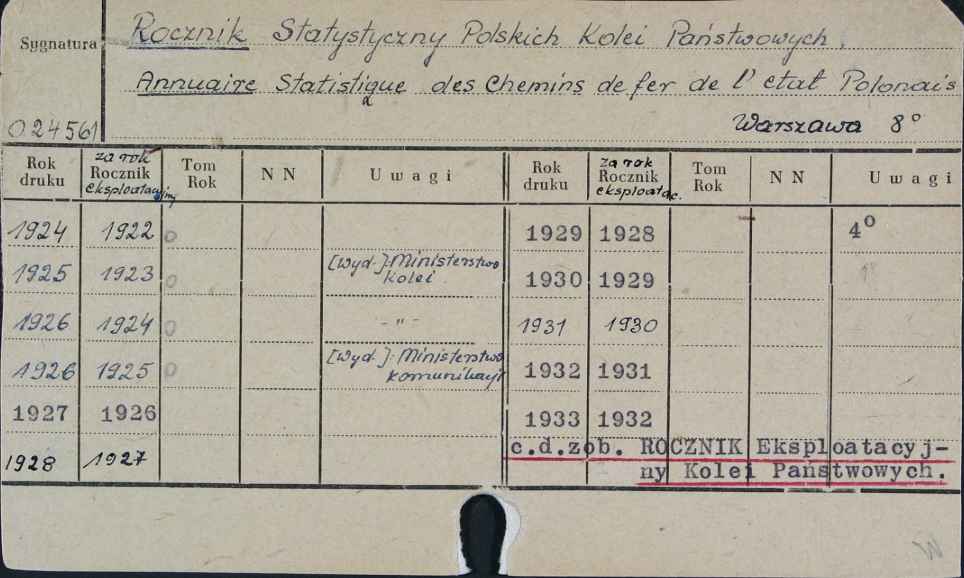 Sygnatura
Rocznik Statystyczny Polskich Kolei Państwowych.
Annuaire Statistique des Chemins de fer de l'etat Polonais
024561
Warszawa 8°
Rok druku | za rok Rocznik eksploatacyjny | Tom Rok | NN | Uwagi | Rok druku | za rok Rocznik eksploatac. | Tom Rok | NN | Uwagi
1924 | 1922 | 0 | | | 1929 | 1928 | | | 4°
1925 | 1923 | 0 | | [Wyd.]: Ministerstwo kolei | 1930 | 1929
1926 | 1924 | 0 | | - " - | 1931 | 1930
1926 | 1925 | 0 | | [Wyd.]: Ministerstwo komunikacji | 1932 | 1931
1927 | 1926 | | | | 1933 | 1932
1928 | 1927 | | | | c.d.zob. ROCZNIK Eksploatacyj-
ny Kolei Państwowych.